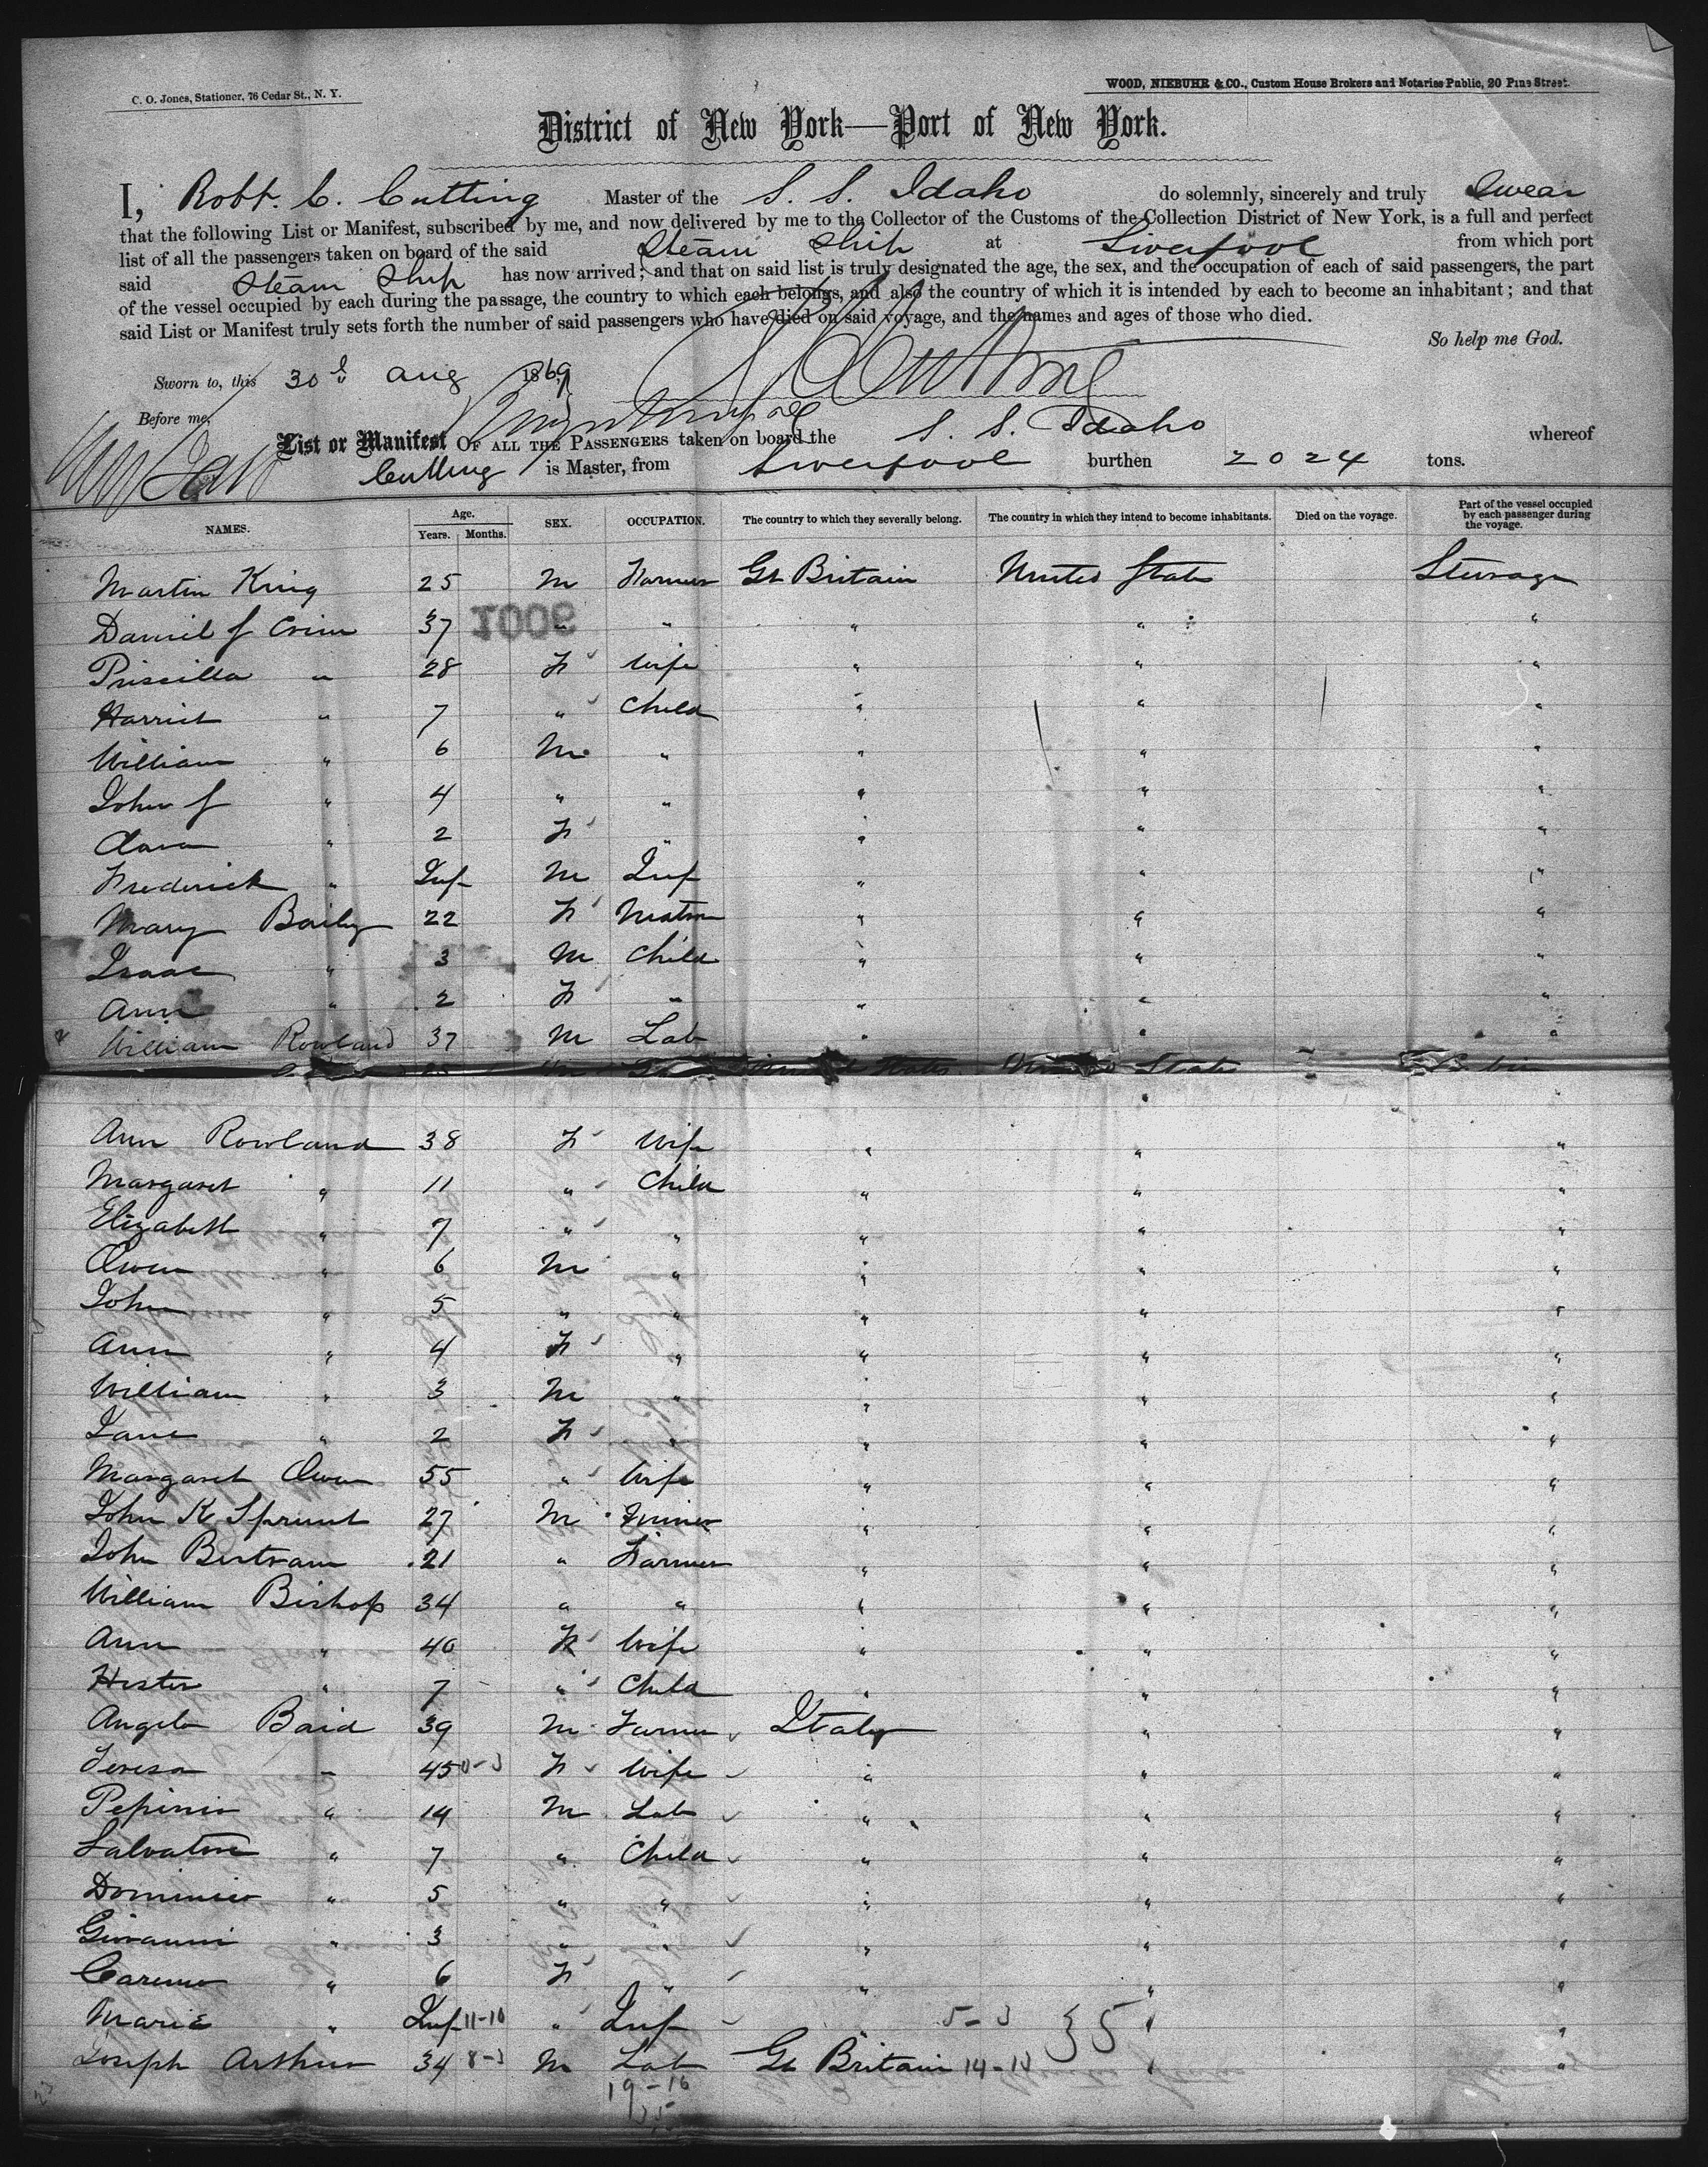 C. O. Jones, Stationer, 76 Cedar St., N. Y.
WOOD, NIEBUHR & CO., Custom House Brokers and Notaries Public, 20 Pine Street.
District of New York—Port of New York.
I, Robt. C. Cutting Master of the S. S. Idaho do solemnly, sincerely and truly Swear
that the following List or Manifest, subscribed by me, and now delivered by me to the Collector of the Customs of the Collection District of New York, is a full and perfect
list of all the passengers taken on board of the said Steam Ship at Liverpool from which port
said Steam Ship has now arrived; and that on said list is truly designated the age, the sex, and the occupation of each of said passengers, the part
of the vessel occupied by each during the passage, the country to which each belongs, and also the country of which it is intended by each to become an inhabitant; and that
said List or Manifest truly sets forth the number of said passengers who have died on said voyage, and the names and ages of those who died.
So help me God.
Sworn to, this 30 Aug 1869
Before me,
List or Manifest OF ALL THE PASSENGERS taken on board the S. S. Idaho whereof
Cutting is Master, from Liverpool burthen 2024 tons.
NAMES. Age. Years. Months. SEX. OCCUPATION. The country to which they severally belong. The country in which they intend to become inhabitants. Died on the voyage. Part of the vessel occupied by each passenger during the voyage.
Martin King 25 M Farmer Gt Britain United States Steerage
1006
Daniel J Crim 37 " " " " "
Priscilla " 28 F Wife " " "
Harriet " 7 " Child " " "
William " 6 M " " " "
John J " 4 " " " " "
Clara " 2 F " " " "
Frederick " Inf M Inf " " "
Mary Baily 22 F Matron " " "
Isaac " 3 M Child " " "
Ann " 2 F " " " "
William Rowland 37 M Lab " " "
Ann Rowland 38 F Wife " " "
Margaret " 11 " Child " " "
Elizabeth " 7 " " " " "
Owen " 6 M " " " "
John " 5 " " " " "
Ann " 4 F " " " "
William " 3 M " " " "
Jane " 2 F " " " "
Margaret Owen 55 " Wife " " "
John K Sprunt 27 M Miner " " "
John Bertram 21 " Farmer " " "
William Bishop 34 " " " " "
Ann " 40 F Wife " " "
Hester " 7 " Child " " "
Angelo Baid 39 M Farmer Italy " "
Teresa " 45 F Wife " " "
Pepinio " 14 M Lab " " "
Salvatore " 7 " Child " " "
Dominico " 5 " " " " "
Giovanni " 3 " " " " "
" 6 F " " " "
Marie " Inf 11-10 " Inf " "
Joseph Arthur 34 M Lab Gt Britain " "
19-16